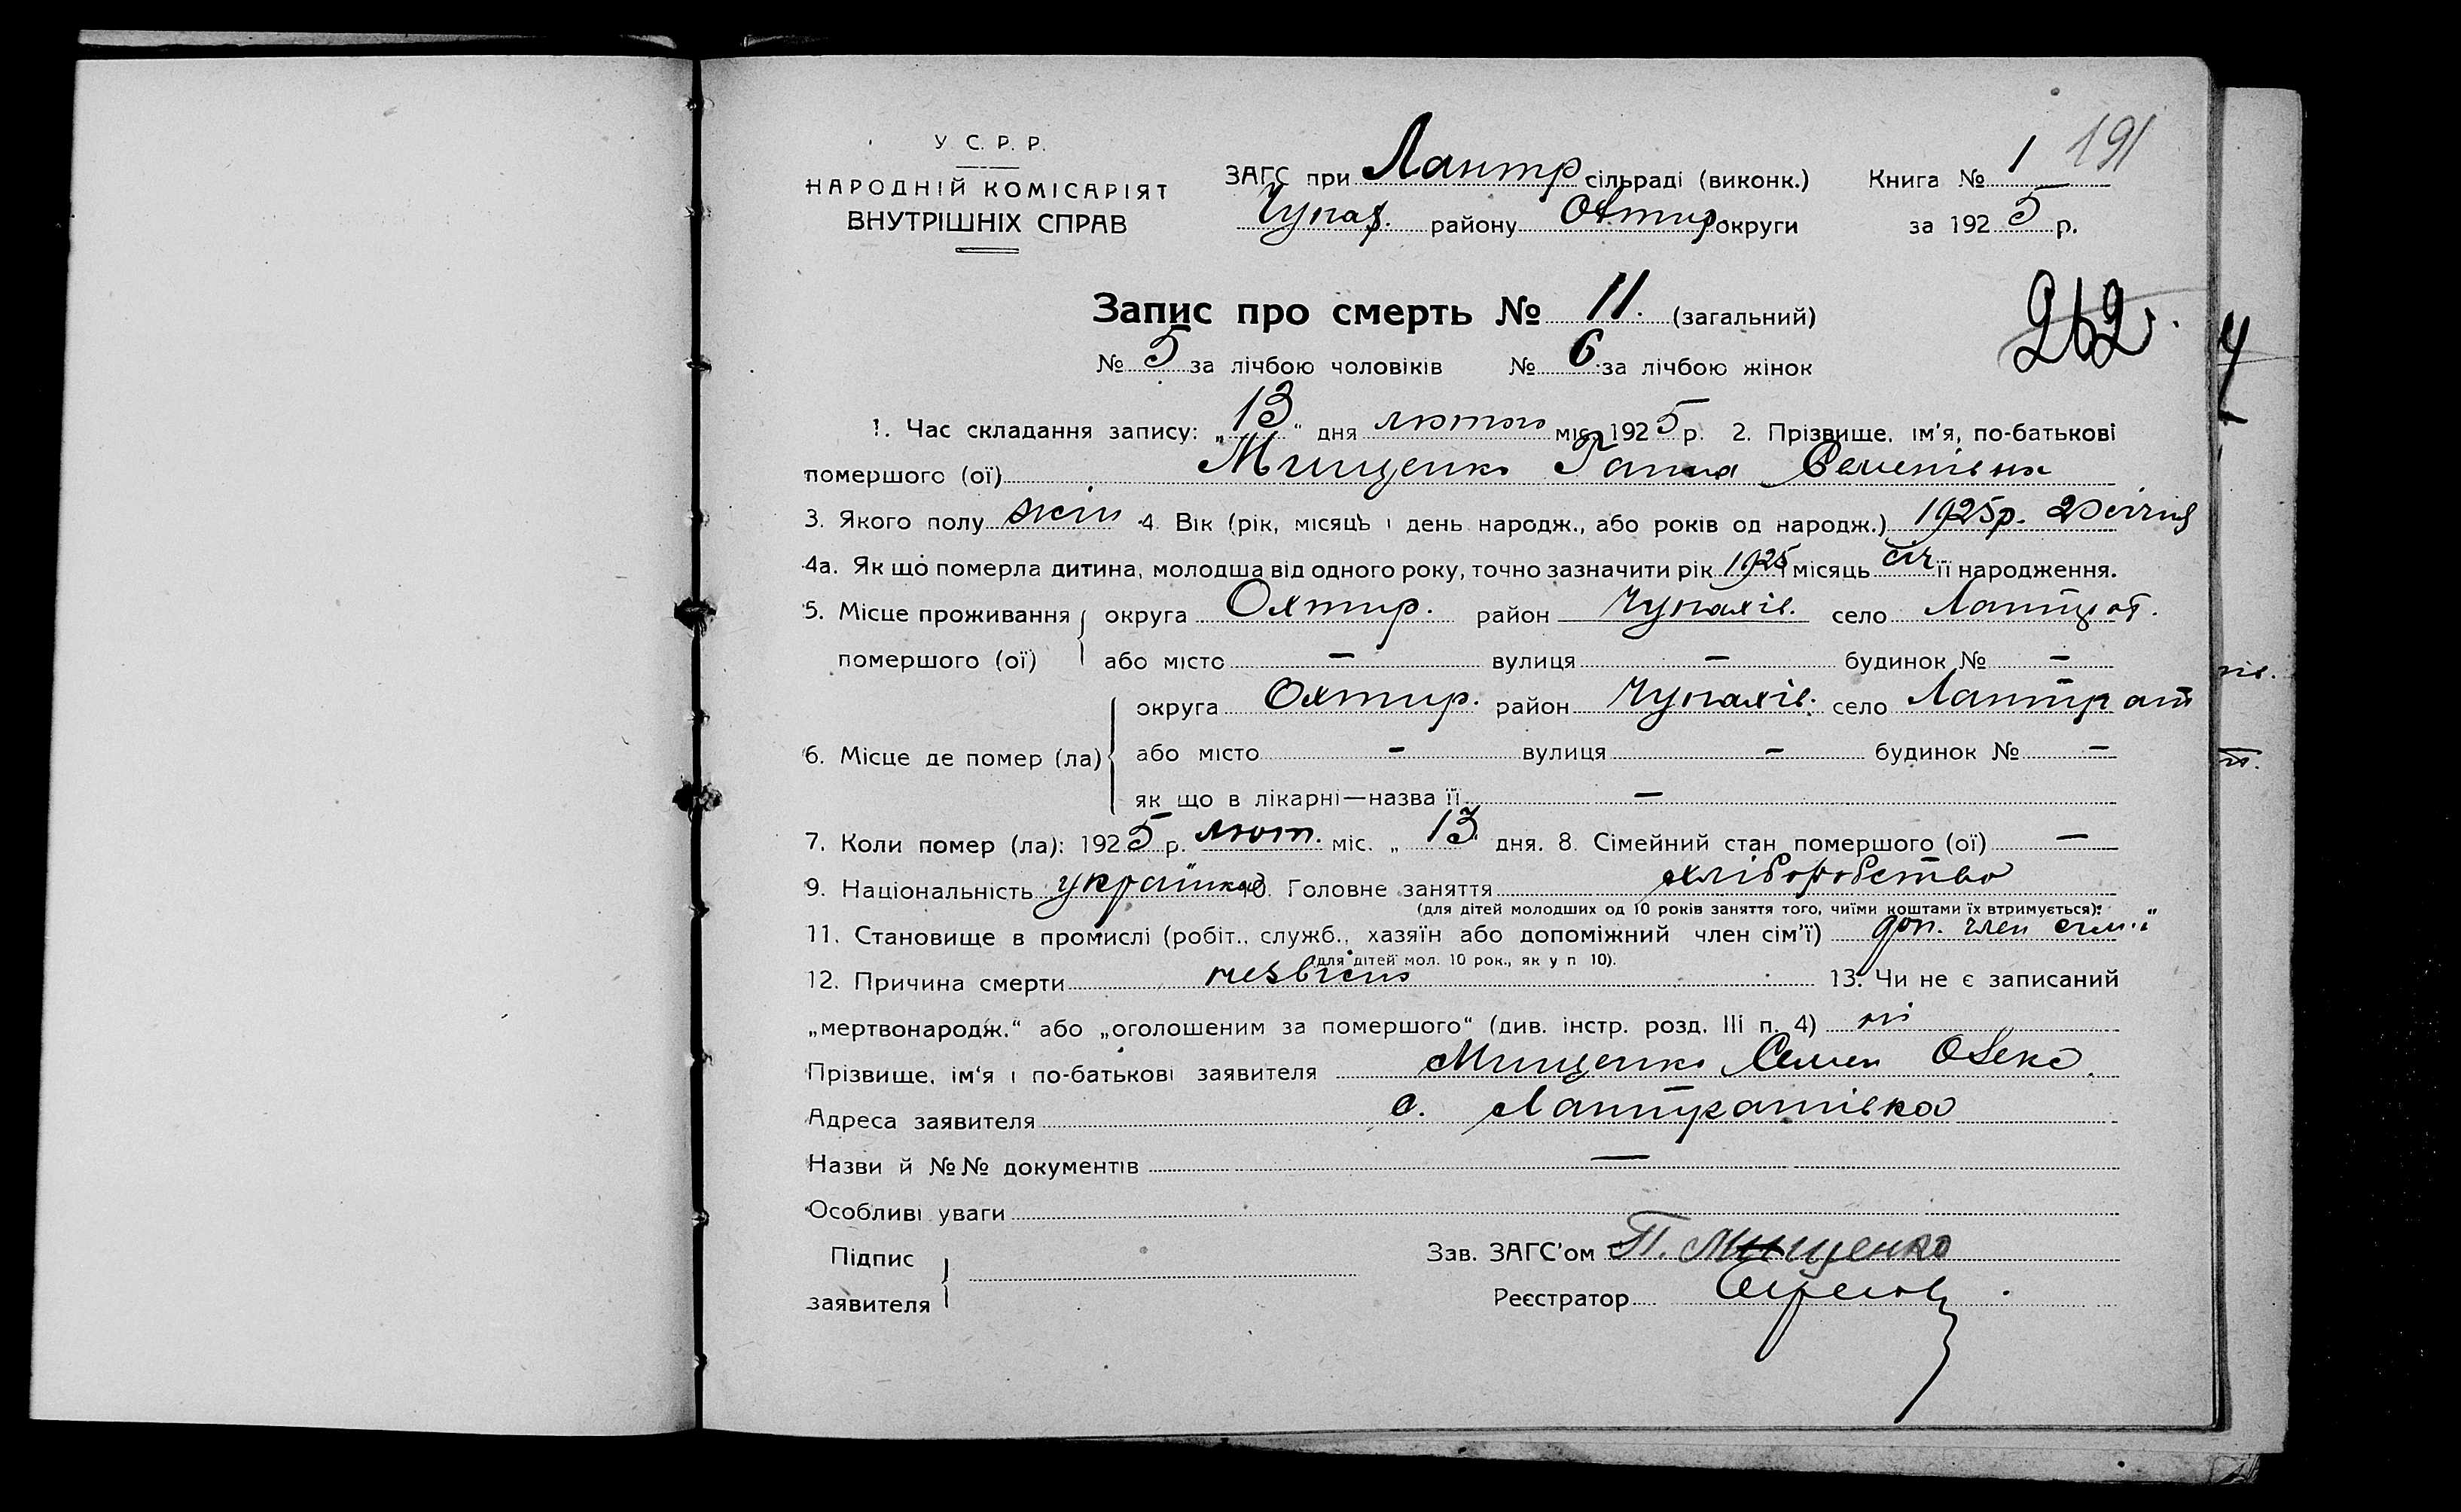 191
У. С. Р. Р.
НАРОДНІЙ КОМІСАРІЯТ
ВНУТРІШНІХ СПРАВ
ЗАГС при Лантр сільраді (виконк.) Книга № 1
Чупах. району Охтир округи за 1925 р.
Запис про смерть № 11. (загальний)
262.
№ 5 за лічбою чоловіків № 6 за лічбою жінок
1. Час складання запису: „13“ дня лютого міс. 1925 р. 2. Прізвище, ім'я, по-батькові
помершого (ої) Мищенко Ганна Семенівна
3. Якого полу жін 4. Вік (рік, місяць і день народж., або років од народж.) 1925р. 20 січня
4а. Як що померла дитина, молодша від одного року, точно зазначити рік 1925 і місяць січ її народження.
5. Місце проживання округа Охтир. район Чупахів. село Лантрат.
помершого (ої) або місто — вулиця — будинок № —
округа Охтир. район Чупахів. село Лантрат
6. Місце де помер (ла) або місто — вулиця — будинок № —
як що в лікарні—назва її —
7. Коли помер (ла): 1925 р. лют. міс. „13“ дня. 8. Сімейний стан помершого (ої) —
9. Національність українка 10. Головне заняття хліборобство
(для дітей молодших од 10 років заняття того, чиїми коштами їх втримується):
11. Становище в промислі (робіт., служб., хазяїн або допоміжний член сім'ї) доп. член сим'ї
(для дітей мол. 10 рок., як у п 10).
12. Причина смерти 13. Чи не є записаний
„мертвонародж.“ або „оголошеним за помершого“ (див. інстр. розд. III п. 4) ні
Прізвище, ім'я і по-батькові заявителя Мищенко Семен Олекс.
Адреса заявителя с. Лантратівка
Назви й №№ документів —
Особливі уваги
Підпис
заявителя
Зав. ЗАГС'ом П. Мищенко
Реєстратор